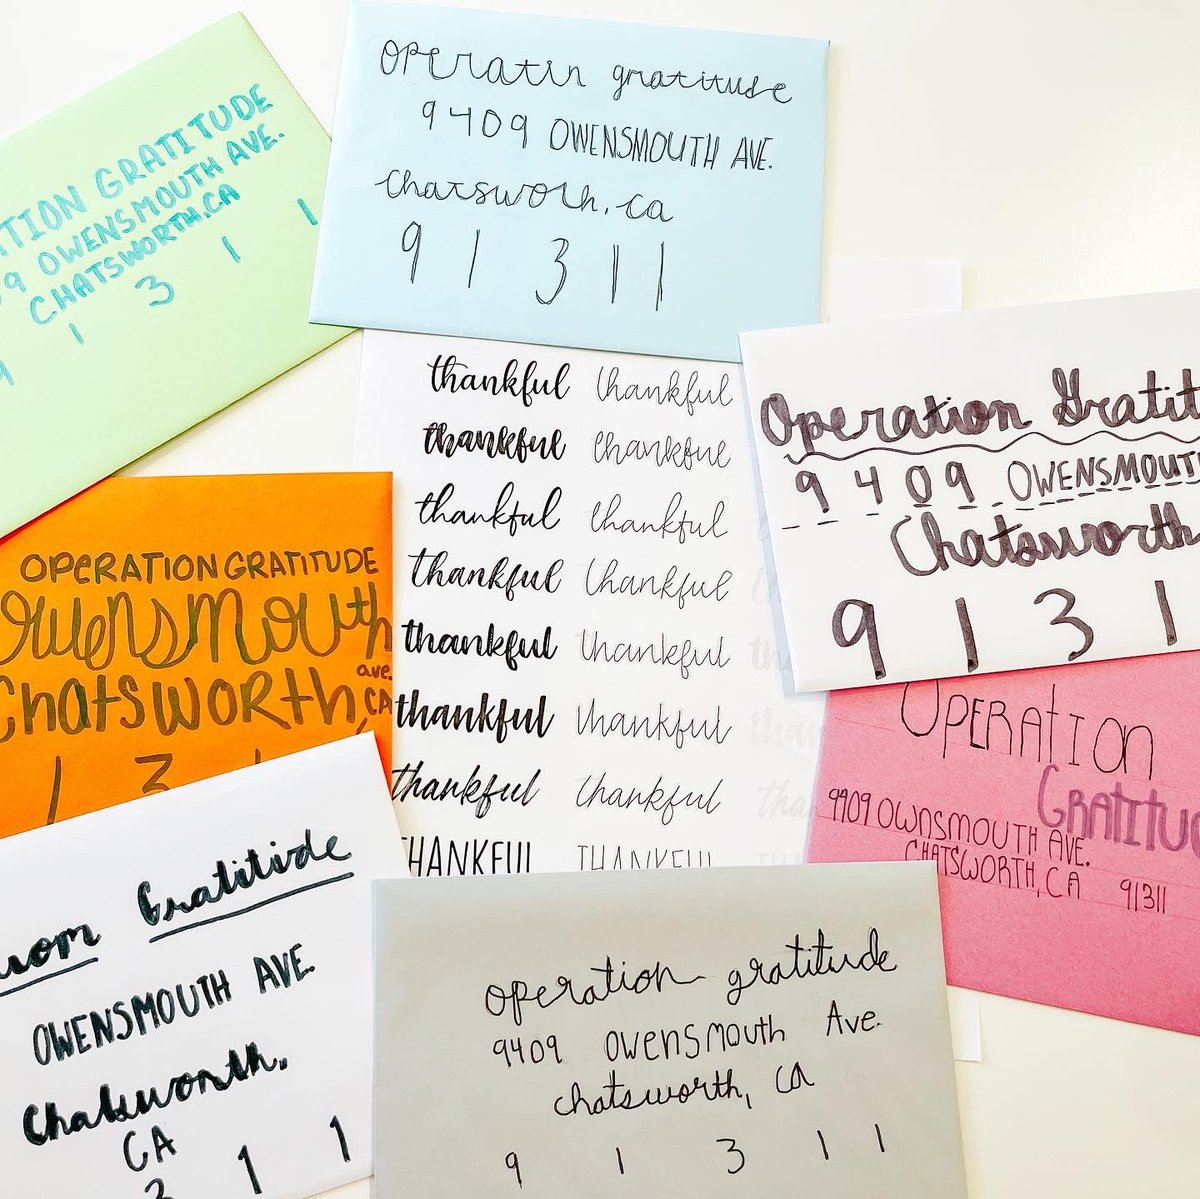 operatin gratitude
9409 OWENSMOUTH AVE.
Chatsworth, ca
9 1 3 1 1
GRATITUDE
OWENSMOUTH AVE.
CHATSWORTH, CA
9 1 3 1 1
thankful thankful
thankful thankful
thankful thankful
thankful thankful
thankful thankful
thankful thankful
thankful thankful
THANKFUL THANKFUL
Operation Gratit
9409 OWENSMOUTH
Chatsworth
9 1 3 1
OPERATION GRATITUDE
Owensmouth
ave.
Chatsworth, CA
1 3 1
OPERATION
GRATITUD
9409 OWNSMOUTH AVE.
CHATSWORTH, CA 91311
Gratitude
OWENSMOUTH AVE.
Chatsworth,
CA
3 1 1
operation gratitude
9409 owensmouth Ave.
chatsworth, CA
9 1 3 1 1